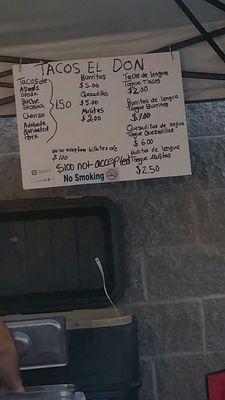 TACOS EL DON
Tacos de
Asada
Steak
Buche
Stomach
Chorizo
Adobada
Marinated
Pork
1.50
Burritos
$5.00
Quesadillas
$5.00
Mulitas
$2.00
Tacos de lengua
Tongue Tacos
$2.00
Burritos de lengua
Tongue Burritos
$7.00
Quesadillas de lengua
Tongue Quesadillas
$6.00
Mulitas de lengua
Tongue Mulitas
$2.50
No se aceptan billetes de
$100
$100 not accepted
No Smoking